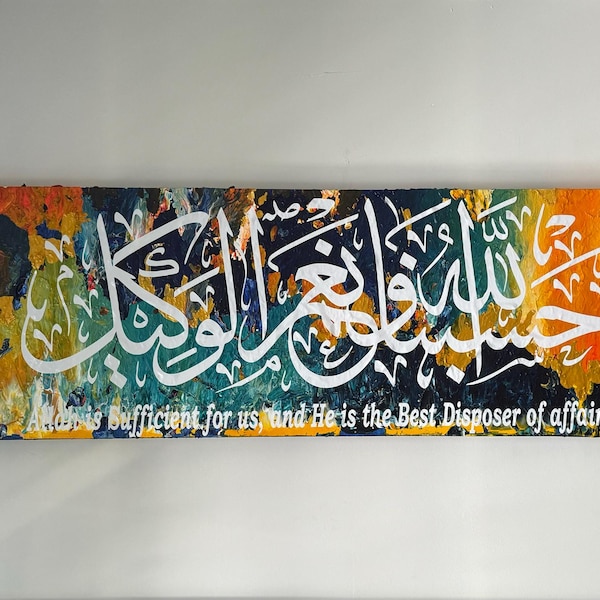 حَسْبُنَا اللَّهُ وَنِعْمَ الْوَكِيلُ
Allah is Sufficient for us, and He is the Best Disposer of affair